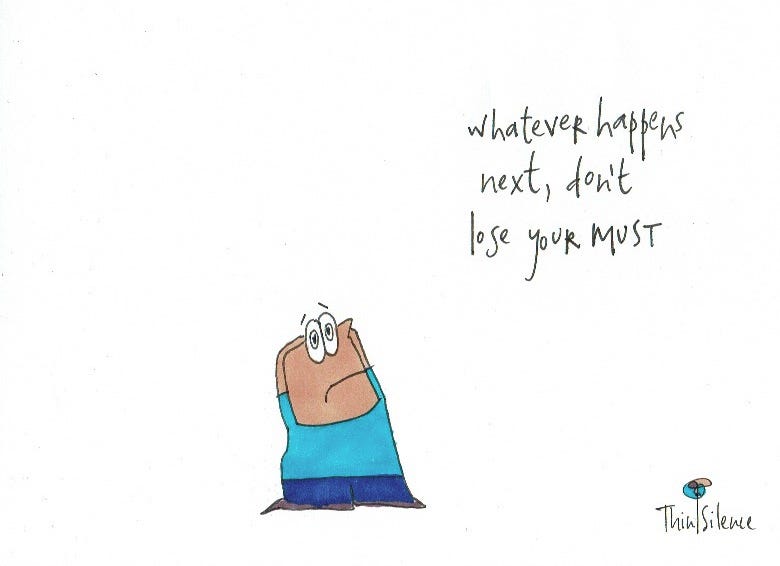 whatever happens
next, don't
lose your MUST
Thin|Silence